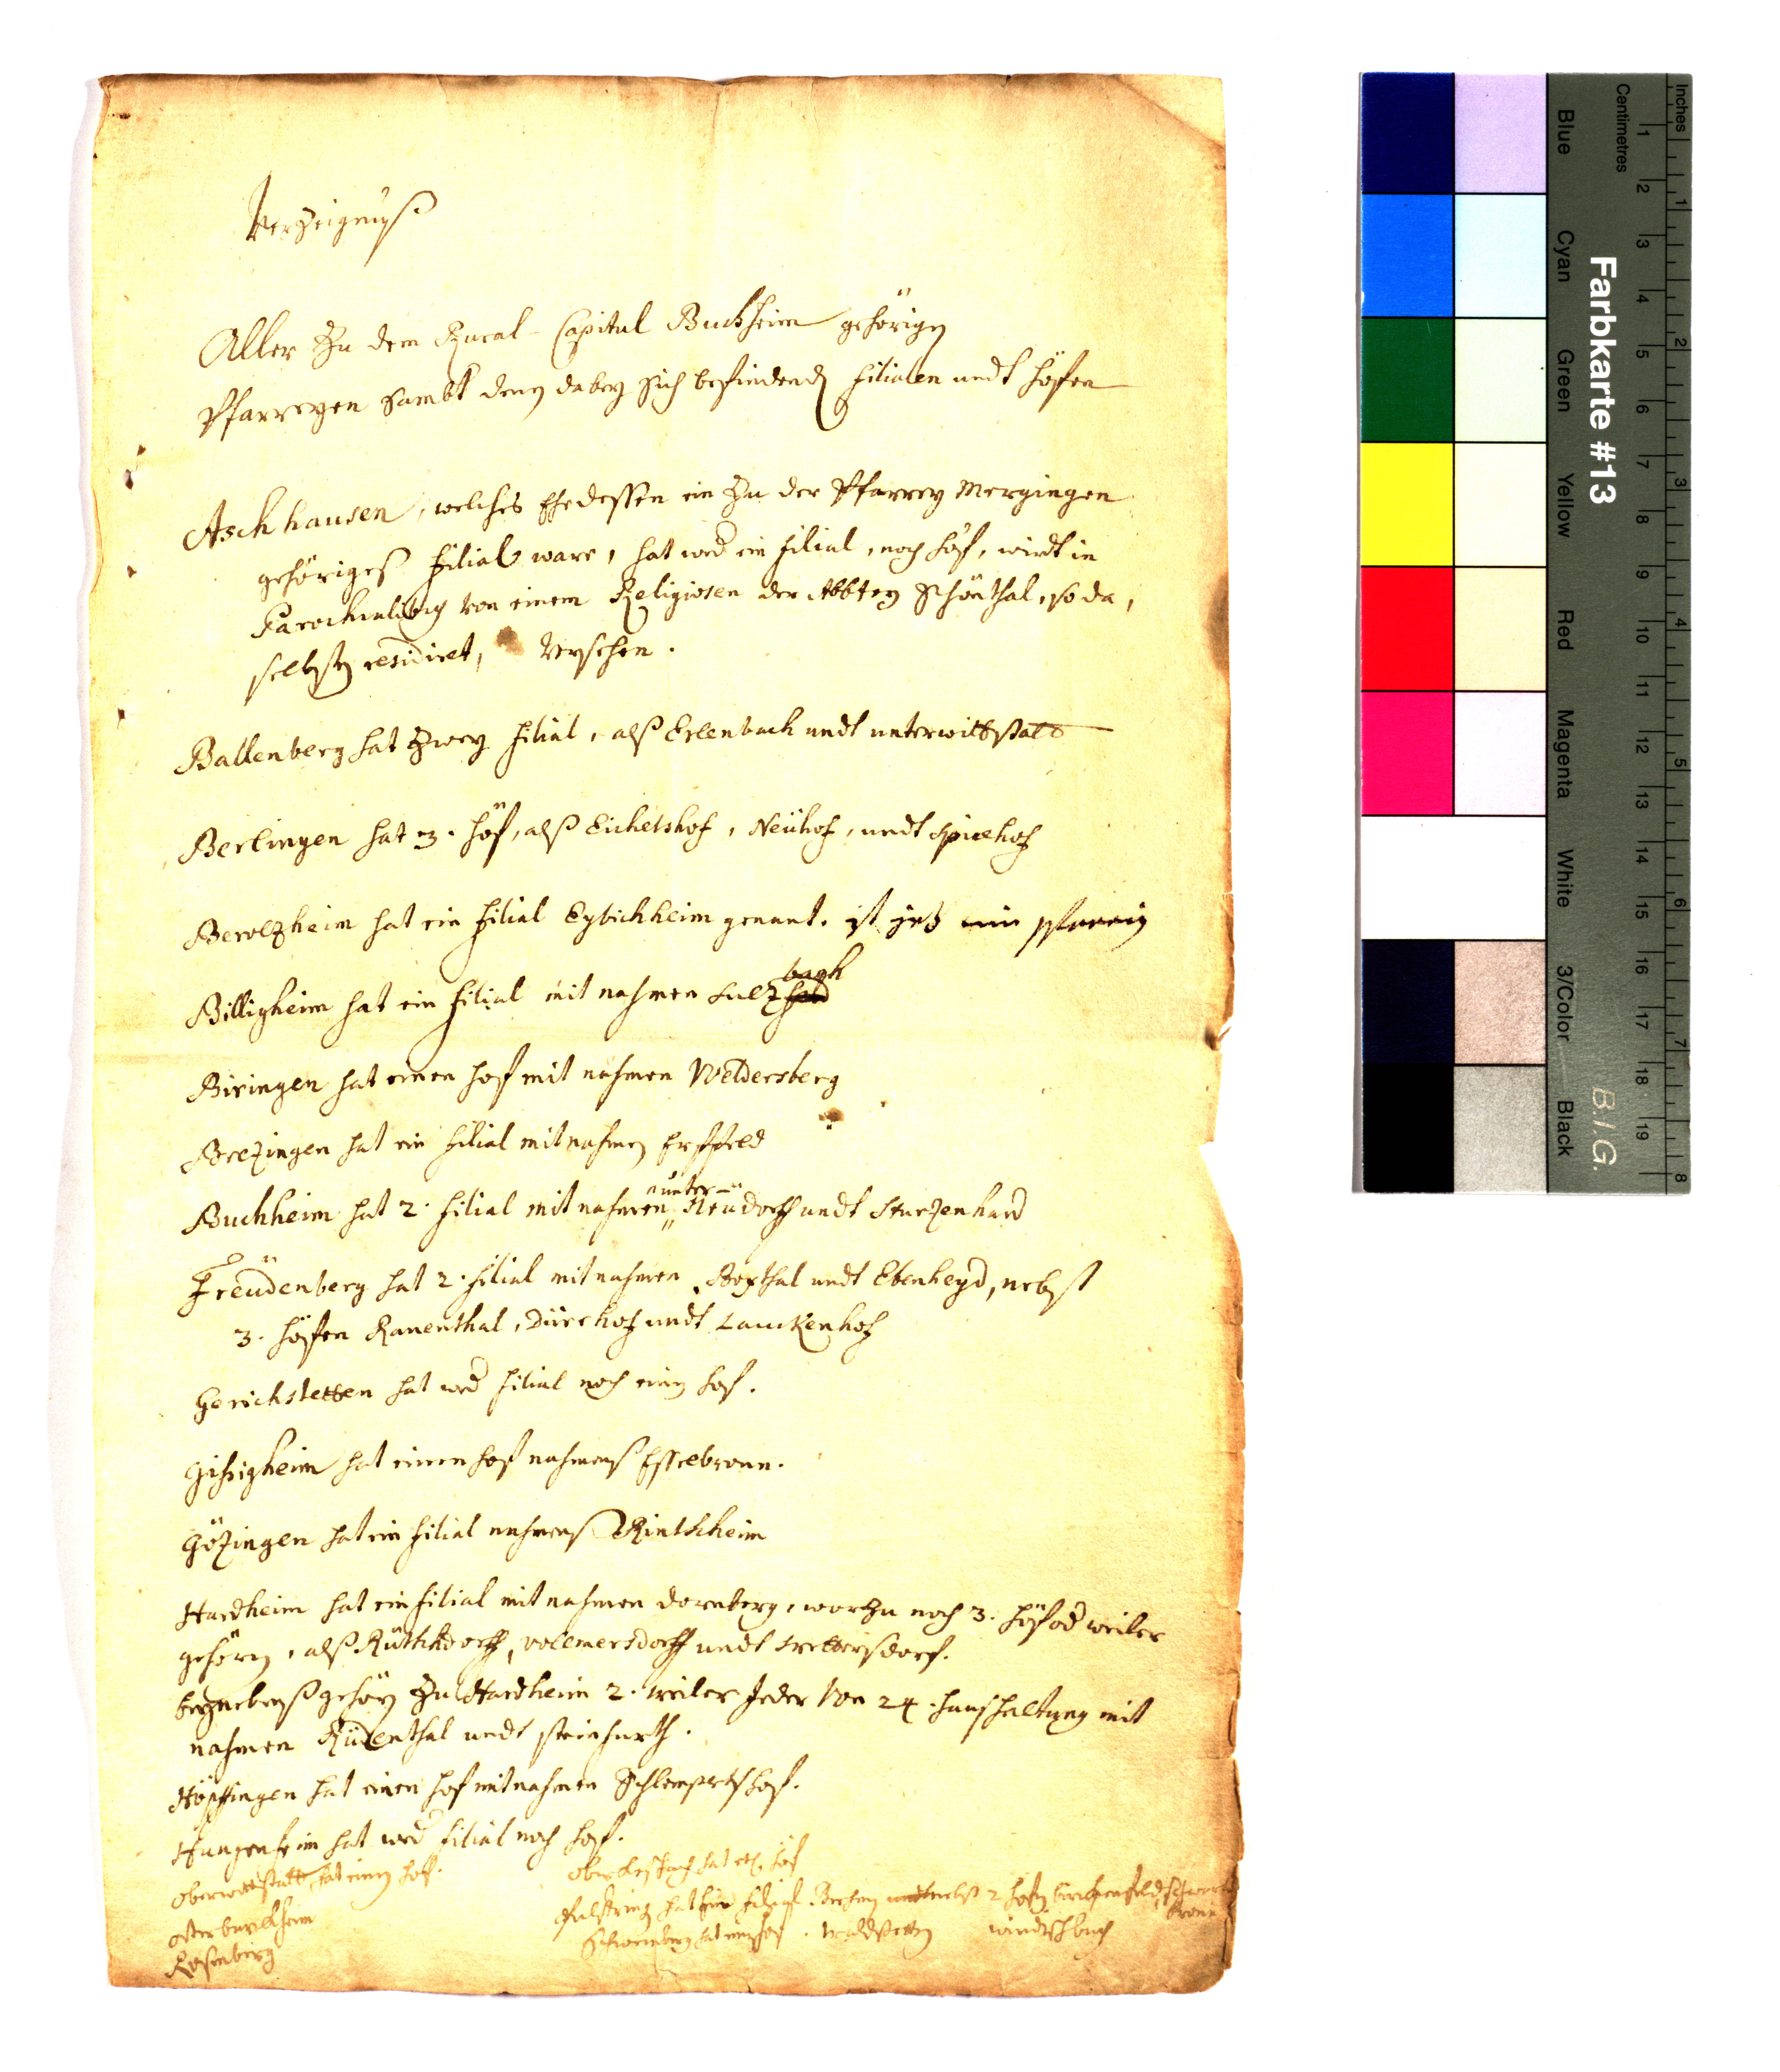 Verzeignuß
Aller Zu dem Rural-Capitul Buchheim gehörigen
Pfarreyen sambt denen dabey sich befindend Filialen undt höfen
Aschhausen, welches Ehedessen ein Zu der Pfarrey Mergingen
gehöriges Filial ware, hat wed ein filial, noch höf, wirdt in
Parochialibus von einem Religiosen der Abbtey Schönthal, so da,
selbsten residiret, versehen.
Ballenberg hat Zwey filial, alß Erlenbach undt unterwittstatt
Berlingen hat 3. höf, alß Eichelshof, Neühof, undt
Berolzheim hat ein filial Eybichheim genant. ist jetz ein pfarrey
Billigheim hat ein filial mit nahmen Sulzbach
Biringen hat einen hof mit nahmen Weldersberg
Brezingen hat ein filial mit nahmen Erffeld
Buchheim hat 2. filial mit nahmen unter-Neudorff undt Sturzenhard
Freüdenberg hat 2. filial mit nahmen Boxthal undt Ebenheyd, nebst
3. höfen Rauenthal, Dürrhof undt Lauckenhof
Gerichstetten hat wed filial noch einen hof.
Gissigheim hat einen hof nahmens Esselbronn.
Gözingen hat ein filial nahmens Rinthheim
Hardheim hat ein filial mit nahmen dornberg, worzu noch 3. höf od weiler
gehören, alß Rüthkdorff, vollmersdorff undt wettersdorf.
beynebenß gehören Zu Hardheim 2. weiler Jeder von 24. haushaltung mit
nahmen Rüdenthal undt steinfurth.
Höpffingen hat einen hof mit nahmen Schlempertshof.
Hungenheim hat wed filial noch hof.
Oberwittstatt hat einen hof.
Osterburckheim
Rosenberg
hat höf
hat filial 2 höfen
Schweinberg hat einen hof. Waldstetten windischbuch